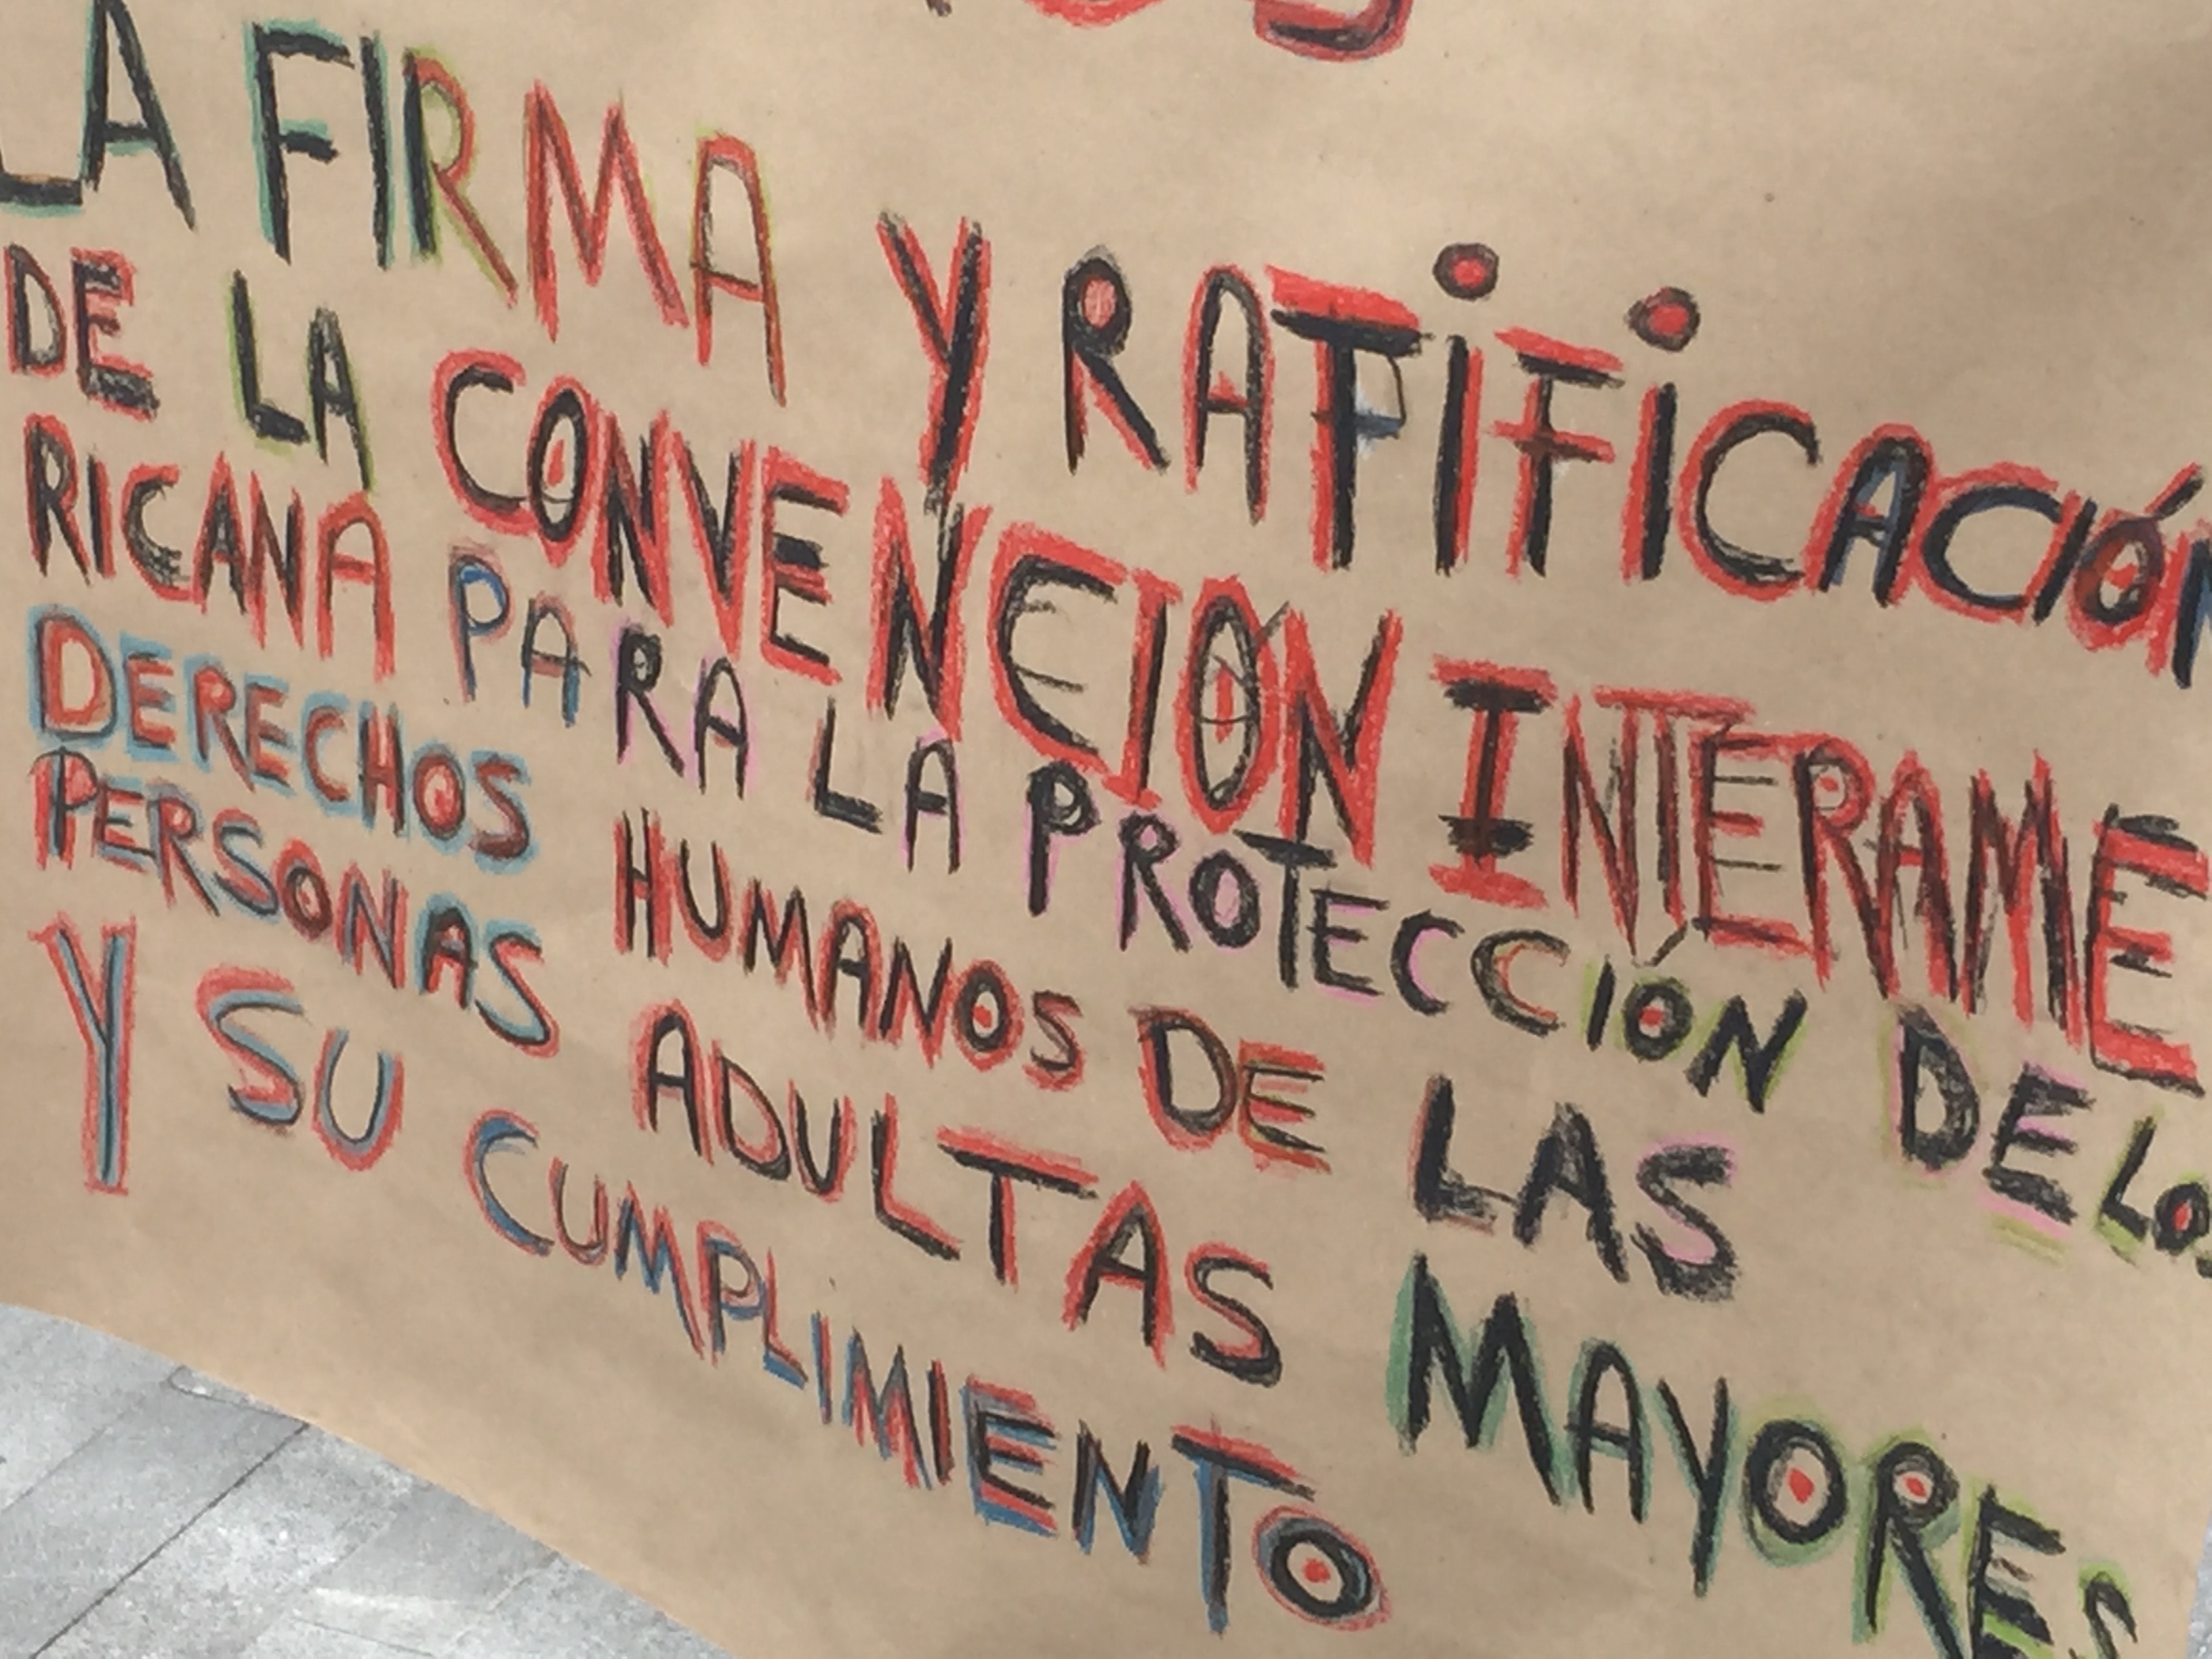 LA FIRMA Y RATiFiCACIÓN
DE LA CONVENCIÓN INTERAME
RICANA PARA LA PROTECCIÓN DE LOS
DERECHOS HUMANOS DE LAS
PERSONAS ADULTAS MAYORES
Y SU CUMPLIMIENTO